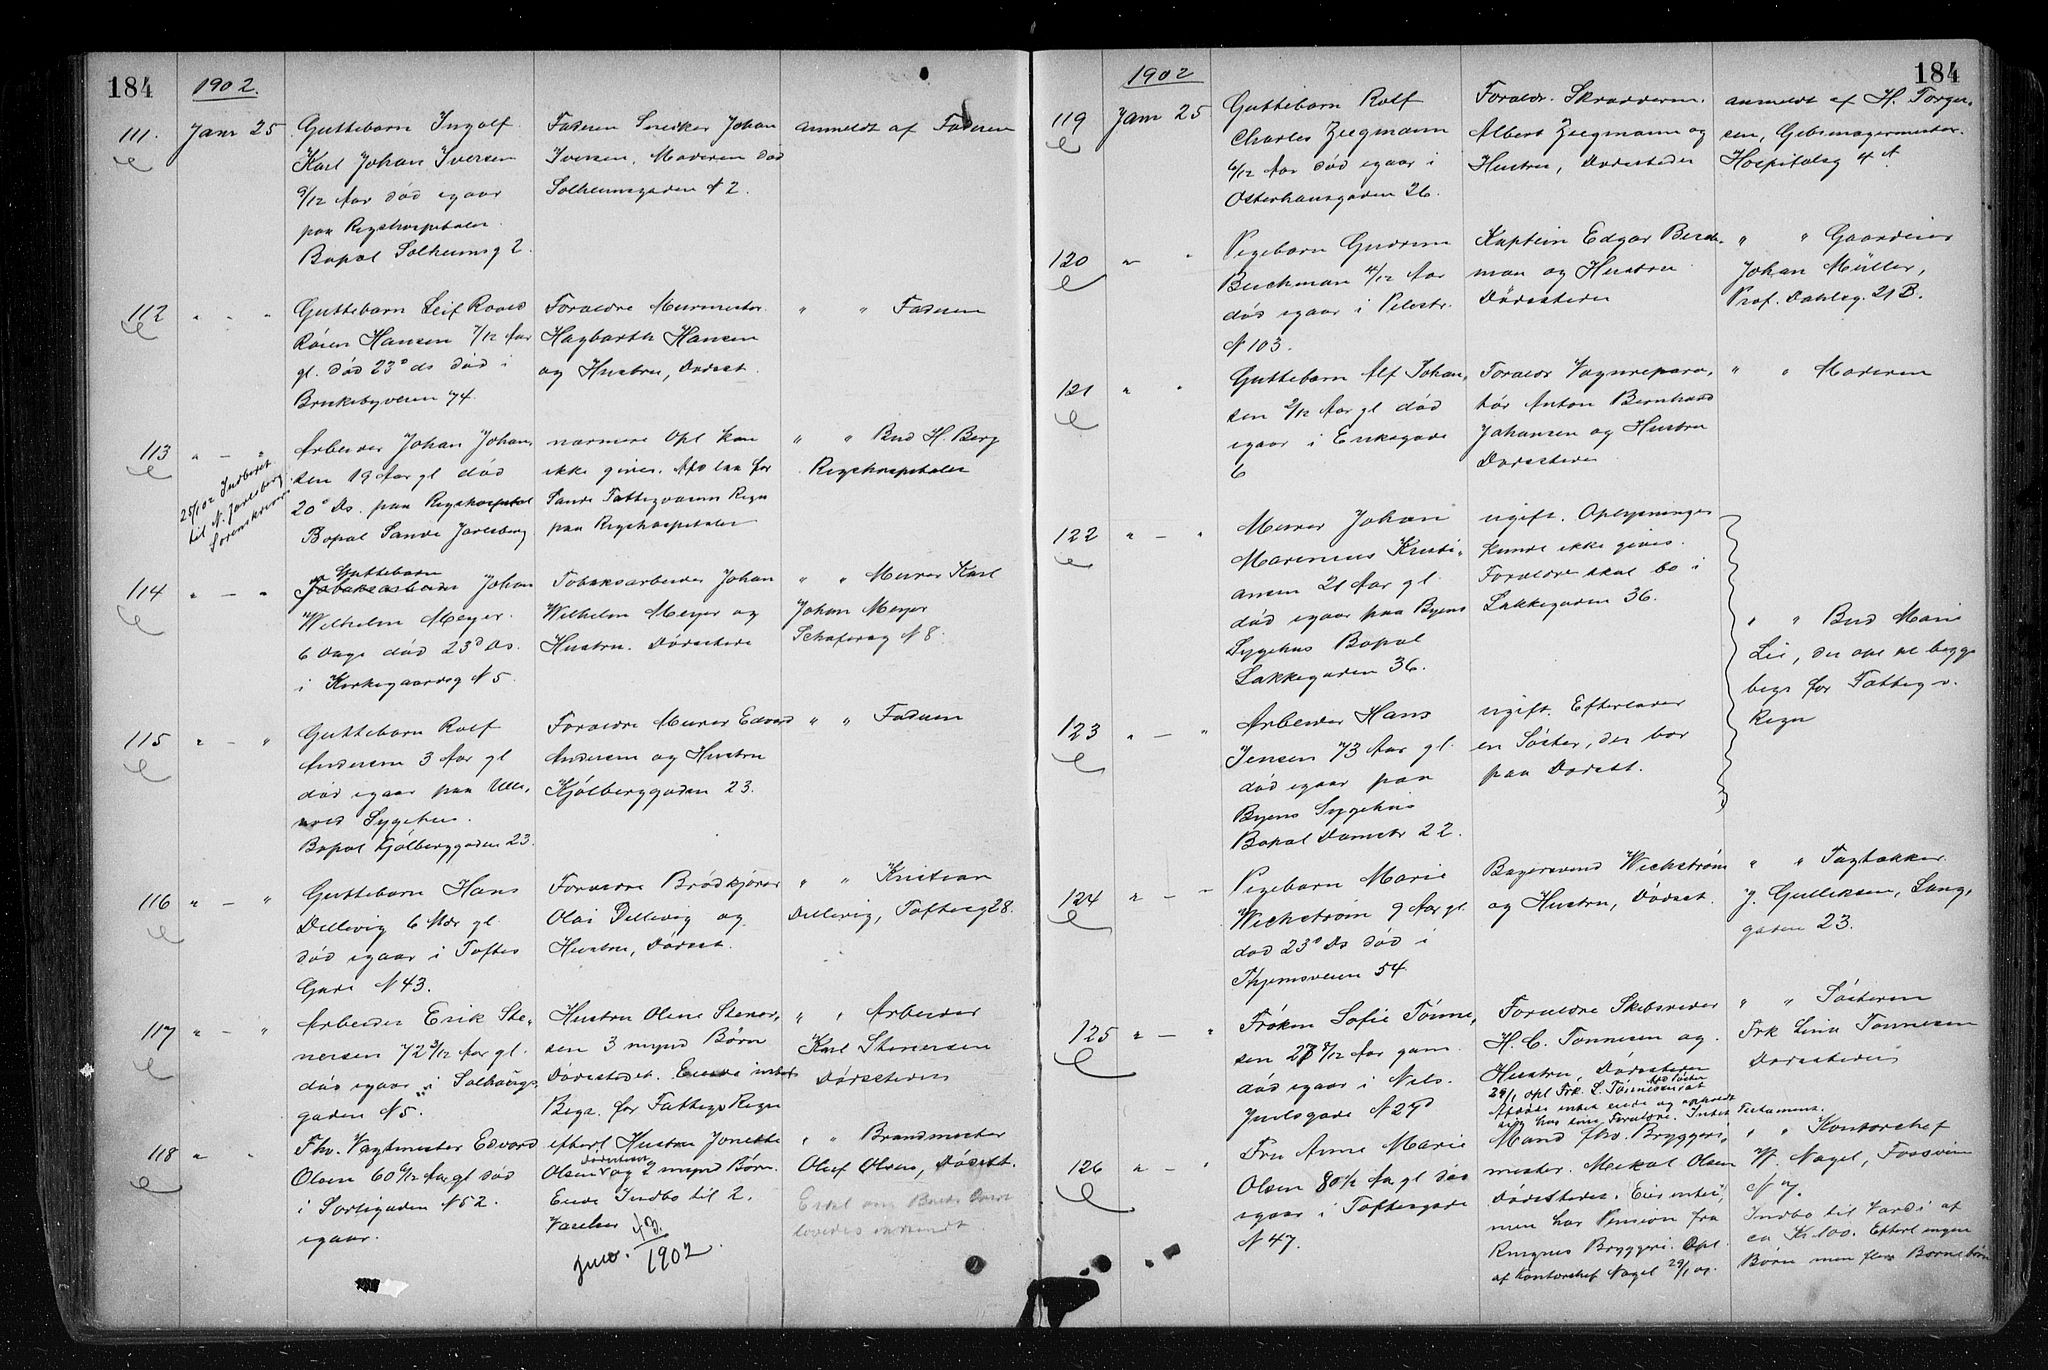 184
1902.
111.
Janr 25
Guttebarn Ingolf
Karl Johan Iversen
9/12 Aar død igaar
paa Rigshospitalet.
Bopæl Solheimsg 2.
Faderen Snedker Johan
Iversen. Moderen død
Solheimsgaden N 2.
anmeldt af Faderen
112
" - "
Guttebarn Leif Roald
Hansen 7/12 Aar
gl. død 23d ds død i
74.
Forældre Murmester
Hagbarth Hansen
og Hustru, Dødsst.
" " Faderen
113
" - "
25/1 02 Indberet
til N. Jarlsberg
Sorenskriver
Arbeider Johan Johan-
sen 19 Aar gl død
20d Ds. paa Rigshospital
Bopæl Sande Jarlsberg
nærmere Opl kan
ikke gives. Afd laa for
Sande Fattigvæsens Regn
paa Rigshospitalet
" " Bud H. Berg
Rigshospitalet
114
" - "
Guttebarn
Tobaksarbeider Johan
Wilhelm Meyer.
6 Dage død 23d Ds.
i Kirkegaardsg N 5.
Tobaksarbeider Johan
Wilhelm Meyer og
Hustru. Dødsstede
" " Murer Karl
Johan Meyer
Schafersg N 8.
115
" - "
Guttebarn Rolf
Andersen 3 Aar gl
død igaar paa Ulle-
vold Sygehus.
Bopæl Kjølberggaden 23.
Forældre Murer Edvard
Andersen og Hustru
Kjølberggaden 23.
" " Faderen
116
" - "
Guttebarn Hans
Dillevig 6 Mdr gl.
død igaar i Toftes
Gade N 43.
Forældre Brødkjører
Olai Dillevig og
Hustru, Dødsst.
" " Kristian
Dillevig, Toftesg 28.
117
" - "
Arbeider Erik Ste-
nersen 72 3/12 Aar gl.
død igaar i Solhaugs
gaden N 5.
Hustru Oline Stener-
sen 3 mynd Børn
Dødsstedet. Eiede intet
Begr. for Fattigv Regn
" " Arbeider
Karl Stenersen
Dødsstedet
118
" "
Fhv. Vagtmester Edvard
Olsen 60 6/12 Aar gl død
i Sortigaden N 52.
igaar.
efterl Hustru Jonette
Dødsstedet
Olsen og 2 mynd Børn.
Eiede Indbo til 2.
1902.
" " Brandmester
Oluf Olsen, Dødsst.
1902
184
119
Janr 25
Guttebarn Rolf
Charles Ziegmann
6/12 Aar død igaar i
Osterhausgaden 26.
Forældr. Skrædderm.
Albert Ziegmann og
Hustru, Dødsstedet
anmeldt af H. Torger-
sen, Gibsmagermester.
Hospitalsg 4 A.
120
" "
Pigebarn Gudrun
Buchman 4/12 Aar
død igaar i Pilestr.
N 103.
Kaptein Edgar Buch-
man og Hustru
Dødsstedet
" " Gaardeier
Johan Müller,
Prof. Dahlsg. 21 B.
121
" "
Guttebarn Alf Johan-
sen 2/12 Aar gl død
igaar i Eriksgade
6
Forældr Vognrepara-
tør Anton Bernhard
Johansen og Hustru
Dødsstedet
" " Moderen
122
" - "
Murer Johan
Marenius Kristi-
ansen 21 Aar gl.
død igaar paa Byens
Sygehus Bopæl
Lakkegaden 36.
ugift. Oplysninger
kunde ikke gives.
Forældre skal bo i
Lakkegaden 36.
" " Bud Marie
Lie, der opl at begge
begr for Fattig v.
Regn
123
" - "
Arbeider Hans
Jensen 73 Aar gl.
død igaar paa
Byens Sygehus
Bopæl Damstr 22.
ugift. Efterlader
en Søster, der bor
paa Dødsst.
124
" -
Pigebarn Marie
Wickstrøm 9 Aar gl.
død 23d Ds død i
54.
Bagersvend Wickstrøm
og Hustru, Dødsst.
" " Tagtækker
J. Gulliksen, Lang-
gaden 23.
125
" - "
Frøken Sofie Tønne-
sen 28 8/12 Aar gam
død igaar i Nils
Juelsgade N 29
Forældre Skibsreder
H. C. Tønnesen og
Hustru, Dødsstedet
29/1 opl Frk. L. Tønnesen at
Afd Søster
Afdøde intet eiede og opholdt
sig hos sine Forældre. Intet Testament.
" " Søsteren
Frk Lina Tønnesen
Dødsstedet
126
" - "
Fru Anne Marie
Olsen 80 1/2 Aar gl død
igaar i Toftesgade
N 47.
Mand fhv. Bryggeri-
mester. Mikal Olsen
Dødsstedet. Eier intet,
men har Pension fra
Ringnes Bryggeri. Opl.
af Kontorchef Nagel 29/1 02.
" " Kontorchef
W. Nagel, Fossvein
N 7.
Indbo til Værdi af
ca Kr 100. Efterl ingen
Børn men flere Børnebørn